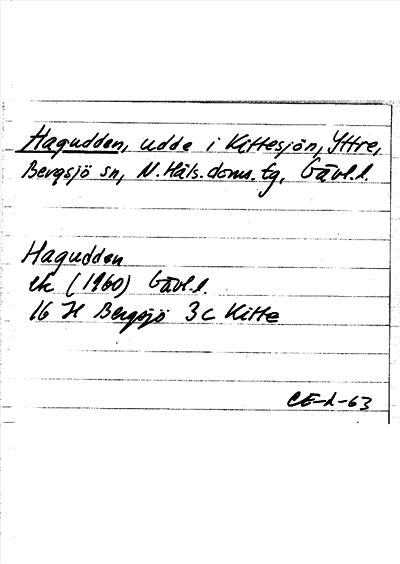 Hagudden, udde i Kittesjön, Yttre,
Bergsjö sn, N. Häls. doms. tg, Gävl. l.
Hagudden
ek (1960) Gävl. l.
16 H Bergsjö 3c Kitte
CE-L-63